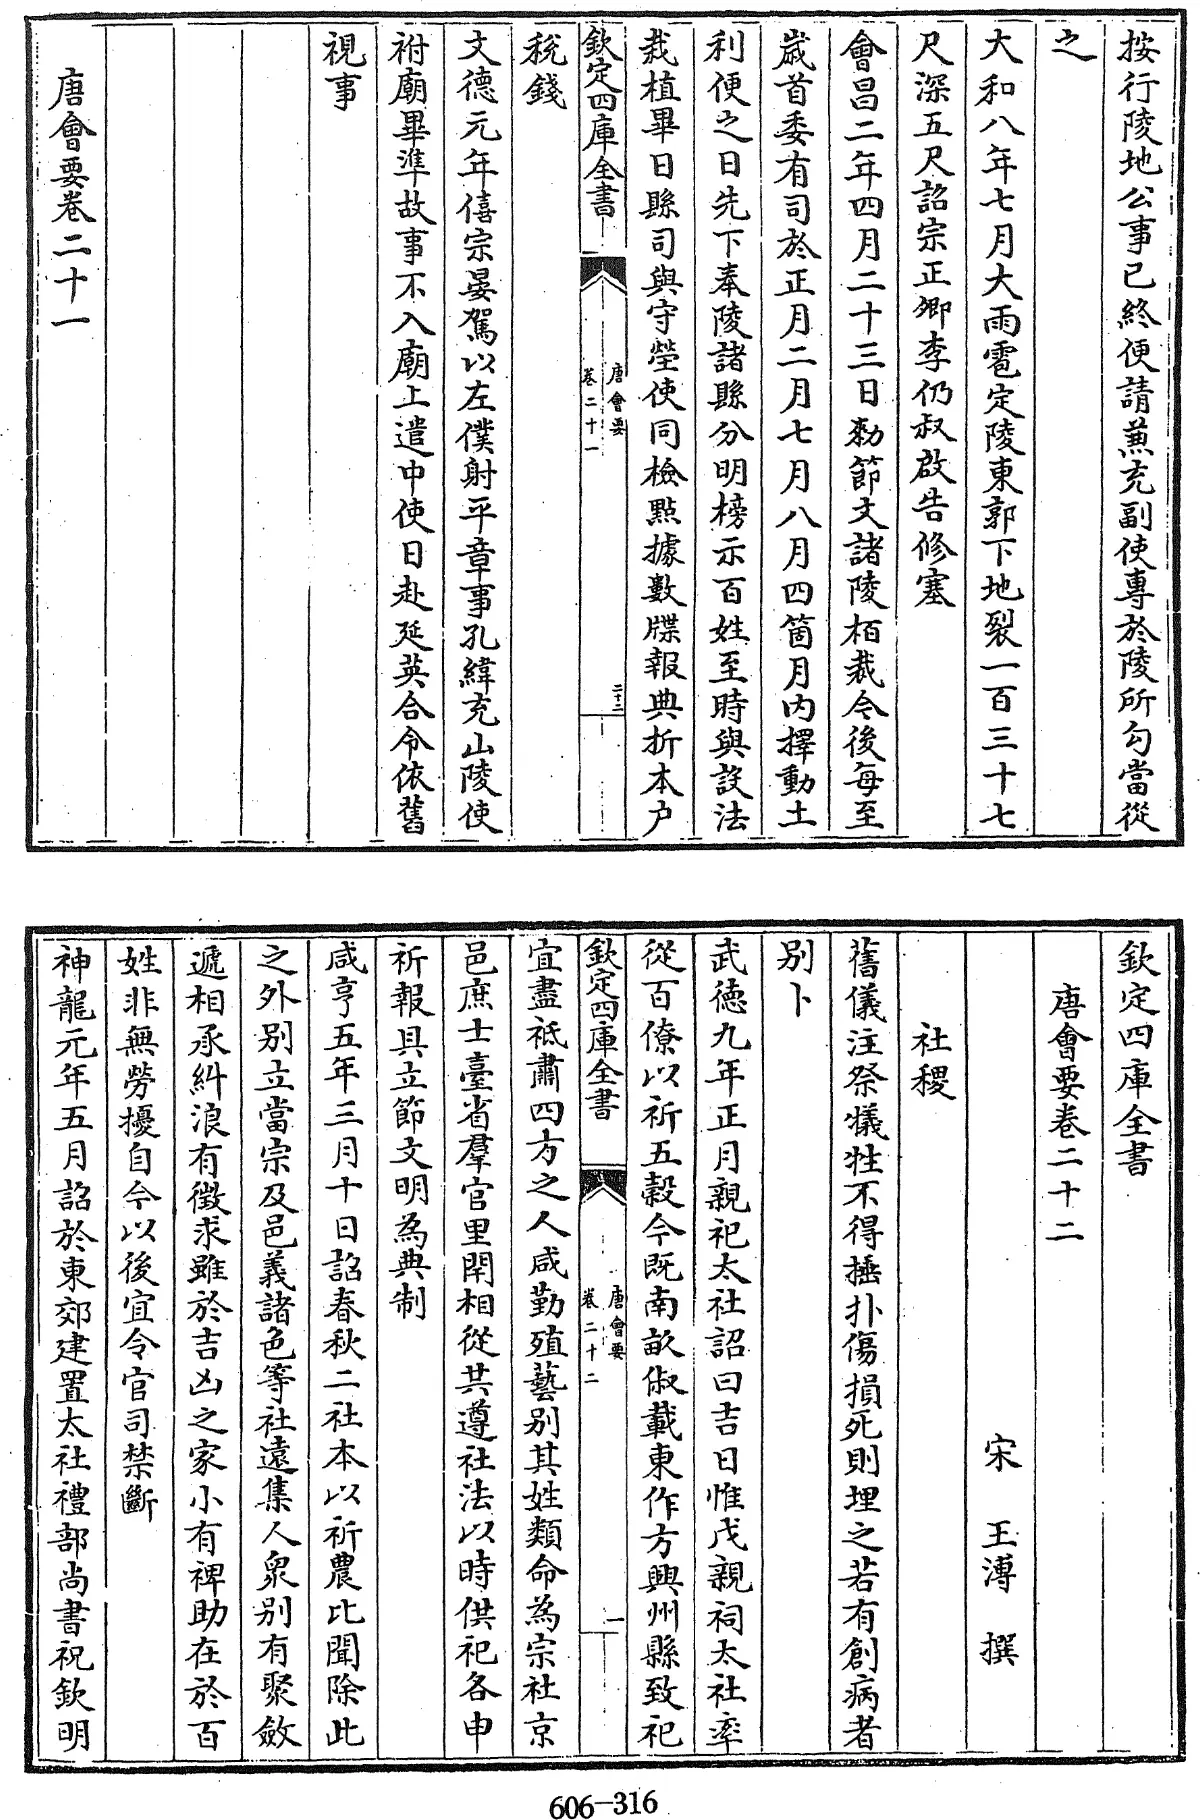 按行陵地公事已終便請兼充副使專於陵所勾當從
之
大和八年七月大雨雹定陵東郭下地裂一百三十七
尺深五尺詔宗正卿李仍叔啟告修塞
會昌二年四月二十三日勑節文諸陵栢栽令後每至
歲首委有司於正月二月七月八月四箇月内擇動土
利便之日先下奉陵諸縣分明榜示百姓至時與設法
栽植畢日縣司與守塋使同檢點據數牒報典折本户
欽定四庫全書
唐會要
卷二十一
二十二
税錢
文德元年僖宗晏駕以左僕射平章事孔緯充山陵使
祔廟畢準故事不入廟上遣中使日赴延英合令依舊
視事
唐會要卷二十一
欽定四庫全書
唐會要卷二十二
宋 王溥 撰
社稷
舊儀注祭犧牲不得捶扑傷損死則埋之若有創病者
別卜
武德九年正月親祀太社詔曰吉日惟戊親祠太社率
從百僚以祈五穀今既南畝俶載東作方興州縣致祀
欽定四庫全書
唐會要
卷二十二
一
宜盡祗肅四方之人咸勤殖藝别其姓類命為宗社京
邑庶士臺省羣官里閈相從共遵社法以時供祀各申
祈報具立節文明為典制
咸亨五年三月十日詔春秋二社本以祈農比聞除此
之外别立當宗及邑義諸色等社遠集人衆别有聚斂
遞相承糾浪有徵求雖於吉凶之家小有裨助在於百
姓非無勞擾自今以後宜令官司禁斷
神龍元年五月詔於東郊建置太社禮部尚書祝欽明
606-316